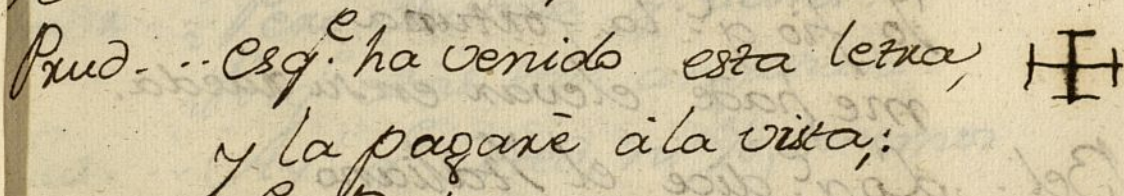 Prud... Esq.e ha venido esta letra,
y la pagarè à la vista;